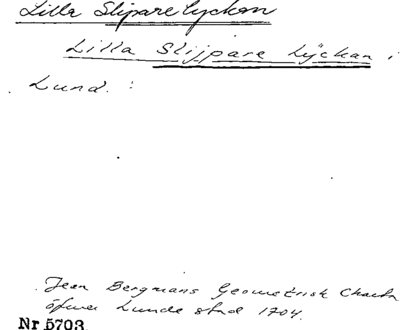 Lilla Slipare lyckan
Lilla Slijpare Lÿckan i
Lund :
Jean Bergmans Geometrisk Charta
öfwer Lunde stad 1704.
Nr 5703